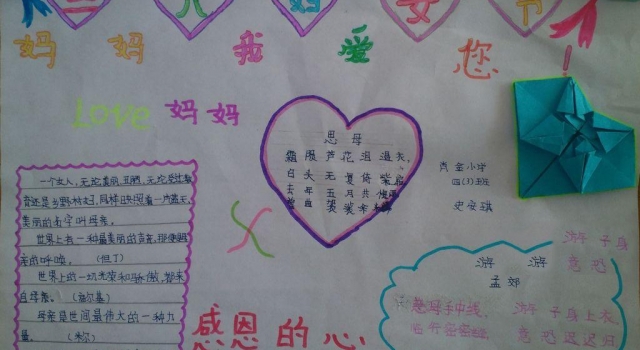 三 八 妇 女 节
妈 妈 我 爱 您 !
Love 妈妈
思 母
霜 殒 芦 花 泪 湿 衣,
白 头 无 复 倚 柴 扉
去 年 五 月 黄 梅 雨
曾 典 袈 裟 籴 米 归
肖金小学
四(3)班
史安琪
一个女人,无论美丽、丑陋,无论受过教
育还是乡野村妇,同样映照着一片蓝天,
美丽的名字叫母亲。
世界上有一种最美丽的声音,那便是母
亲的呼唤。 (但丁)
世界上的一切光荣和骄傲,都来
自母亲。 (高尔基)
母亲是世间最伟大的一种力
量。 (米尔)
游 子 身
意 恐
游 游
孟 郊
慈母手中线, 游 子身上衣,
临行密密缝, 意恐迟迟归
感恩 的 心